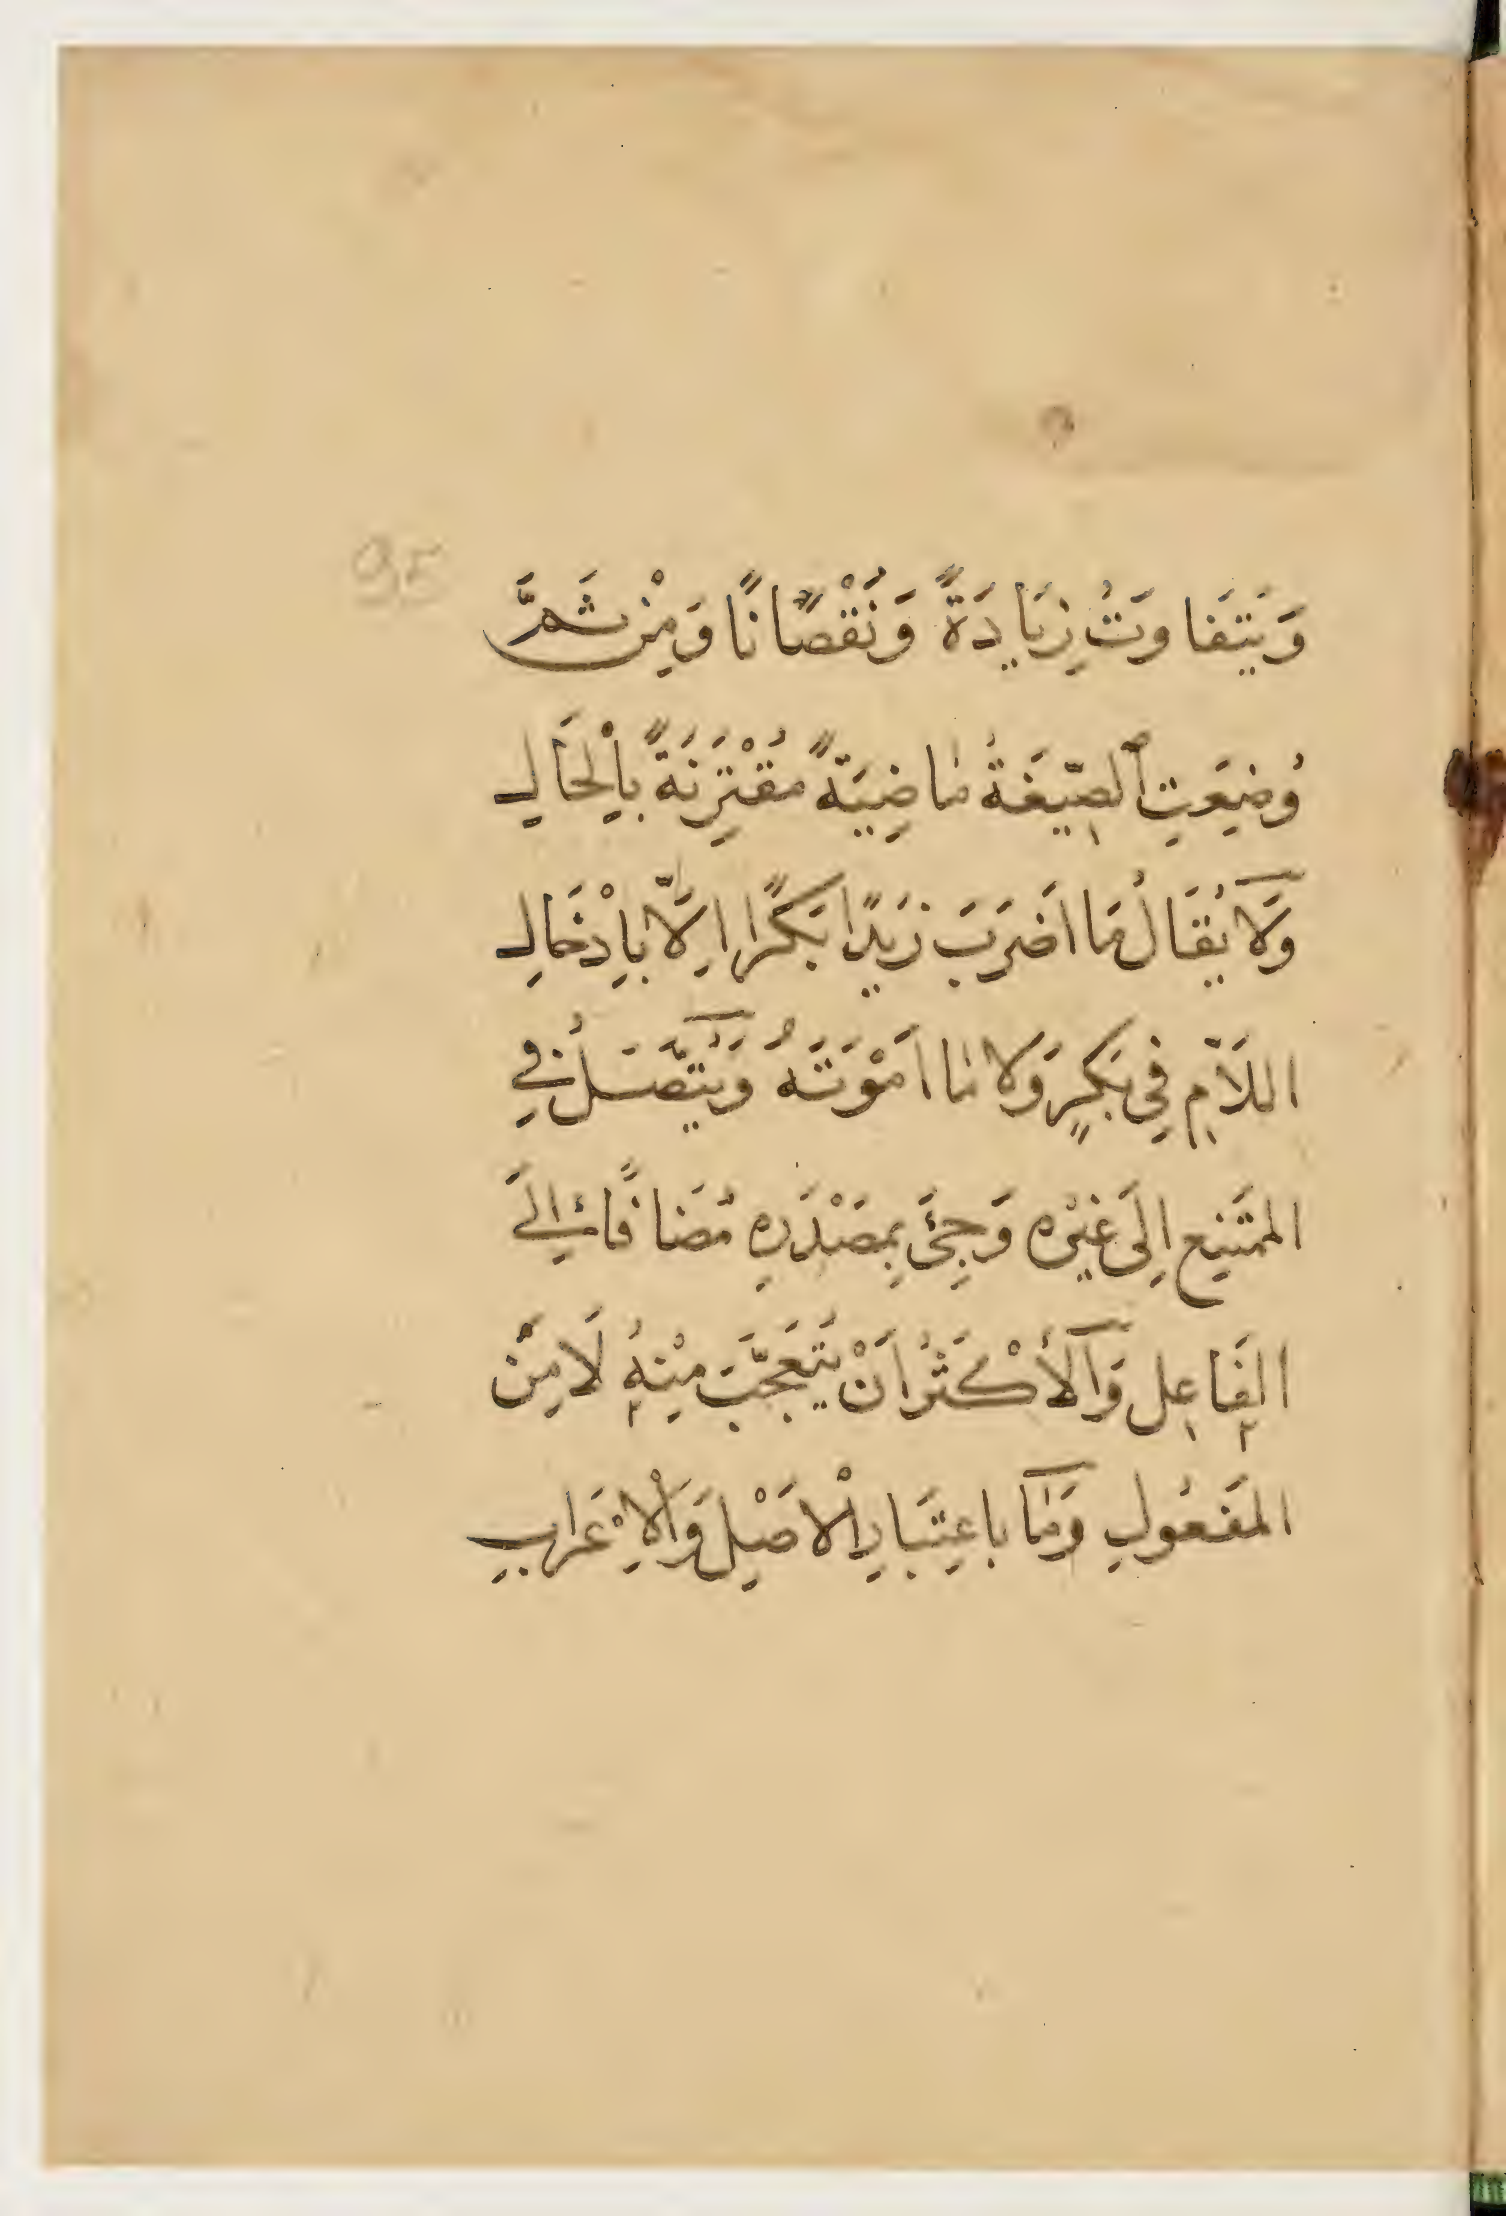 95
وَيَتَفَاوَتُ زِيَادَةً وَنُقْصَانًا وَمِنْ ثَمَّ
وُضِعَتِ الصِّيغَةُ مَاضِيَةً مُقْتَرِنَةً بِالْحَالِ
وَلَا يُقَالُ مَا اَضْرَبَ زَيْدًا بَكْرًا اِلَّا بِاِدْخَالِ
اللَّامِ فِي بَكْرٍ وَلَا مَا اَمْوَتَهُ وَيَتَّصَلُ فِي
الممتَنِعِ اِلَى غَيْرِه وَجِيْءَ بِمَصْدَرِهِ مُضَافًا اِلَى
الفَاعِلِ وَالْاَكْثَرُ اَنْ يَتَعَجَّبَ مِنْهُ لَا مِنَ
المَفعُولِ وَمَا بِاعتِبَارِ الْاَصْلِ وَالْاِعْرَابِ